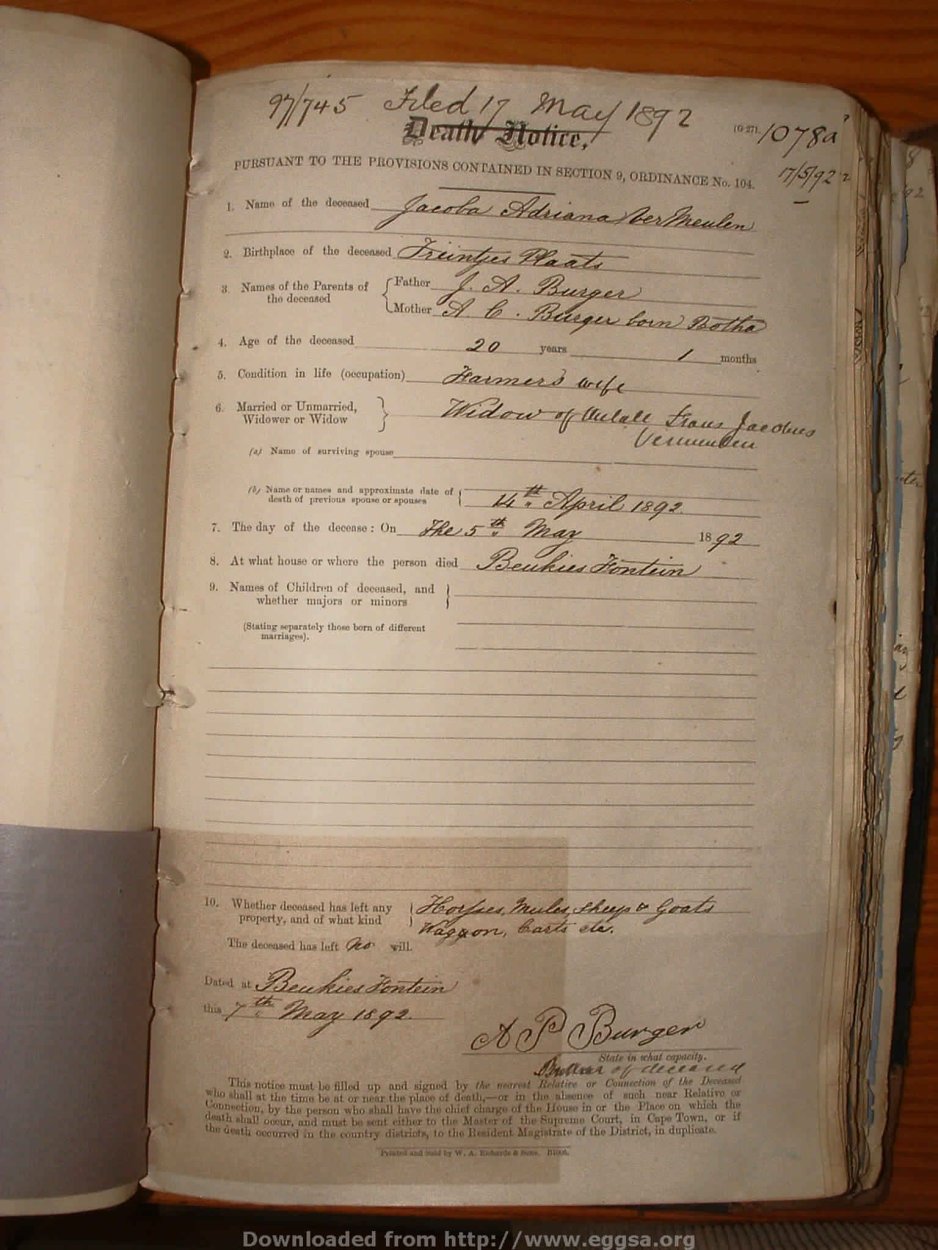 97/745 Filed 17 May 1892
Death Notice, (G 27). 1078a
17/5/92
PURSUANT TO THE PROVISIONS CONTAINED IN SECTION 9, ORDINANCE No. 104.
1. Name of the deceased Jacoba Adriana Ver Meulen
2. Birthplace of the deceased Plaats
3 Names of the Parents of the deceased { Father J. A. Burger
Mother A C. Burger born Botha
4. Age of the deceased 20 years 1 months
5. Condition in life (occupation) Farmers wife
6. Married or Unmarried, Widower or Widow } Widow of Frans Jacobus
(a) Name of surviving spouse
(b) Name or names and approximate date of death of previous spouse or spouses { 14th April 1892
7. The day of the decease: On The 5th May 1892
8. At what house or where the person died Beukies Fontein
9. Names of Children of deceased, and whether majors or minors }
(Stating separately those born of different marriages).
10. Whether deceased has left any property, and of what kind } Horses, Mules, Sheep & Goats
Waggon, Carts etc.
The deceased has left no will.
Dated at Beukies Fontein
this 7th May 1892.
A P Burger
State in what capacity.
Brother of deceased
This notice must be filled up and signed by the nearest Relative or Connection of the Deceased
who shall at the time be at or near the place of death,—or in the absence of such near Relative or
Connection, by the person who shall have the chief charge of the House in or the Place on which the
death shall occur, and must be sent either to the Master of the Supreme Court, in Cape Town, or if
the death occurred in the country districts, to the Resident Magistrate of the District, in duplicate.
Printed and sold by W. A. Richards & Sons.
Downloaded from http://www.eggsa.org